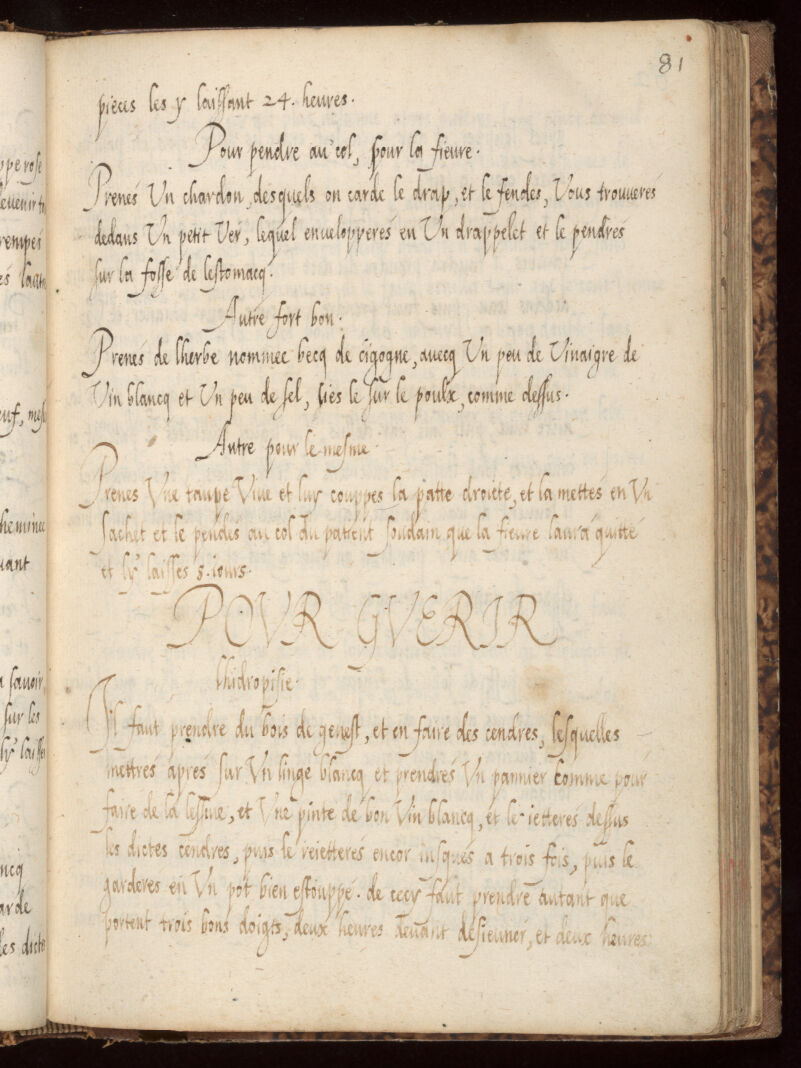 81
pieces les y laissant 24. heures.
Pour pendre au col, pour la fieure.
Prenés Un chardon, desquels on carde le drap, et le fendes, Vous trouueres
dedans Un petit Ver, lequel enuelopperes en Un drappelet et le pendres
sur la fosse de lestomacq.
Autre fort bon.
Prenés de lherbe nommee becq de cigogne, auecq Un peu de Vinaigre de
Vin blancq et Un peu de sel, liés le sur le poulx, comme dessus.
Autre pour le mesme.
Prenes Vne taupe Viue et luy couppes la patte droicte, et la mettes en Vn
sachet et le pendés au col du patient soudain que la fieure laura quitté
et ly laisses 8. iours.
POVR GVERIR
lhidropisie.
Il faut prendre du bois de genest, et en faire des cendres, lesquelles
mettrés apres sur Vn linge blancq et prendrés Vn pannier comme pour
faire de la lessiue, et Vne pinte de bon Vin blancq, et le ietterés dessus
les dictes cendres, puis le reietteres encor iusques a trois fois, puis le
garderes en Vn pot bien estouppé. de cecy faut prendre autant que
portent trois bons doigts, deux heures deuant desieuner, et deux heures